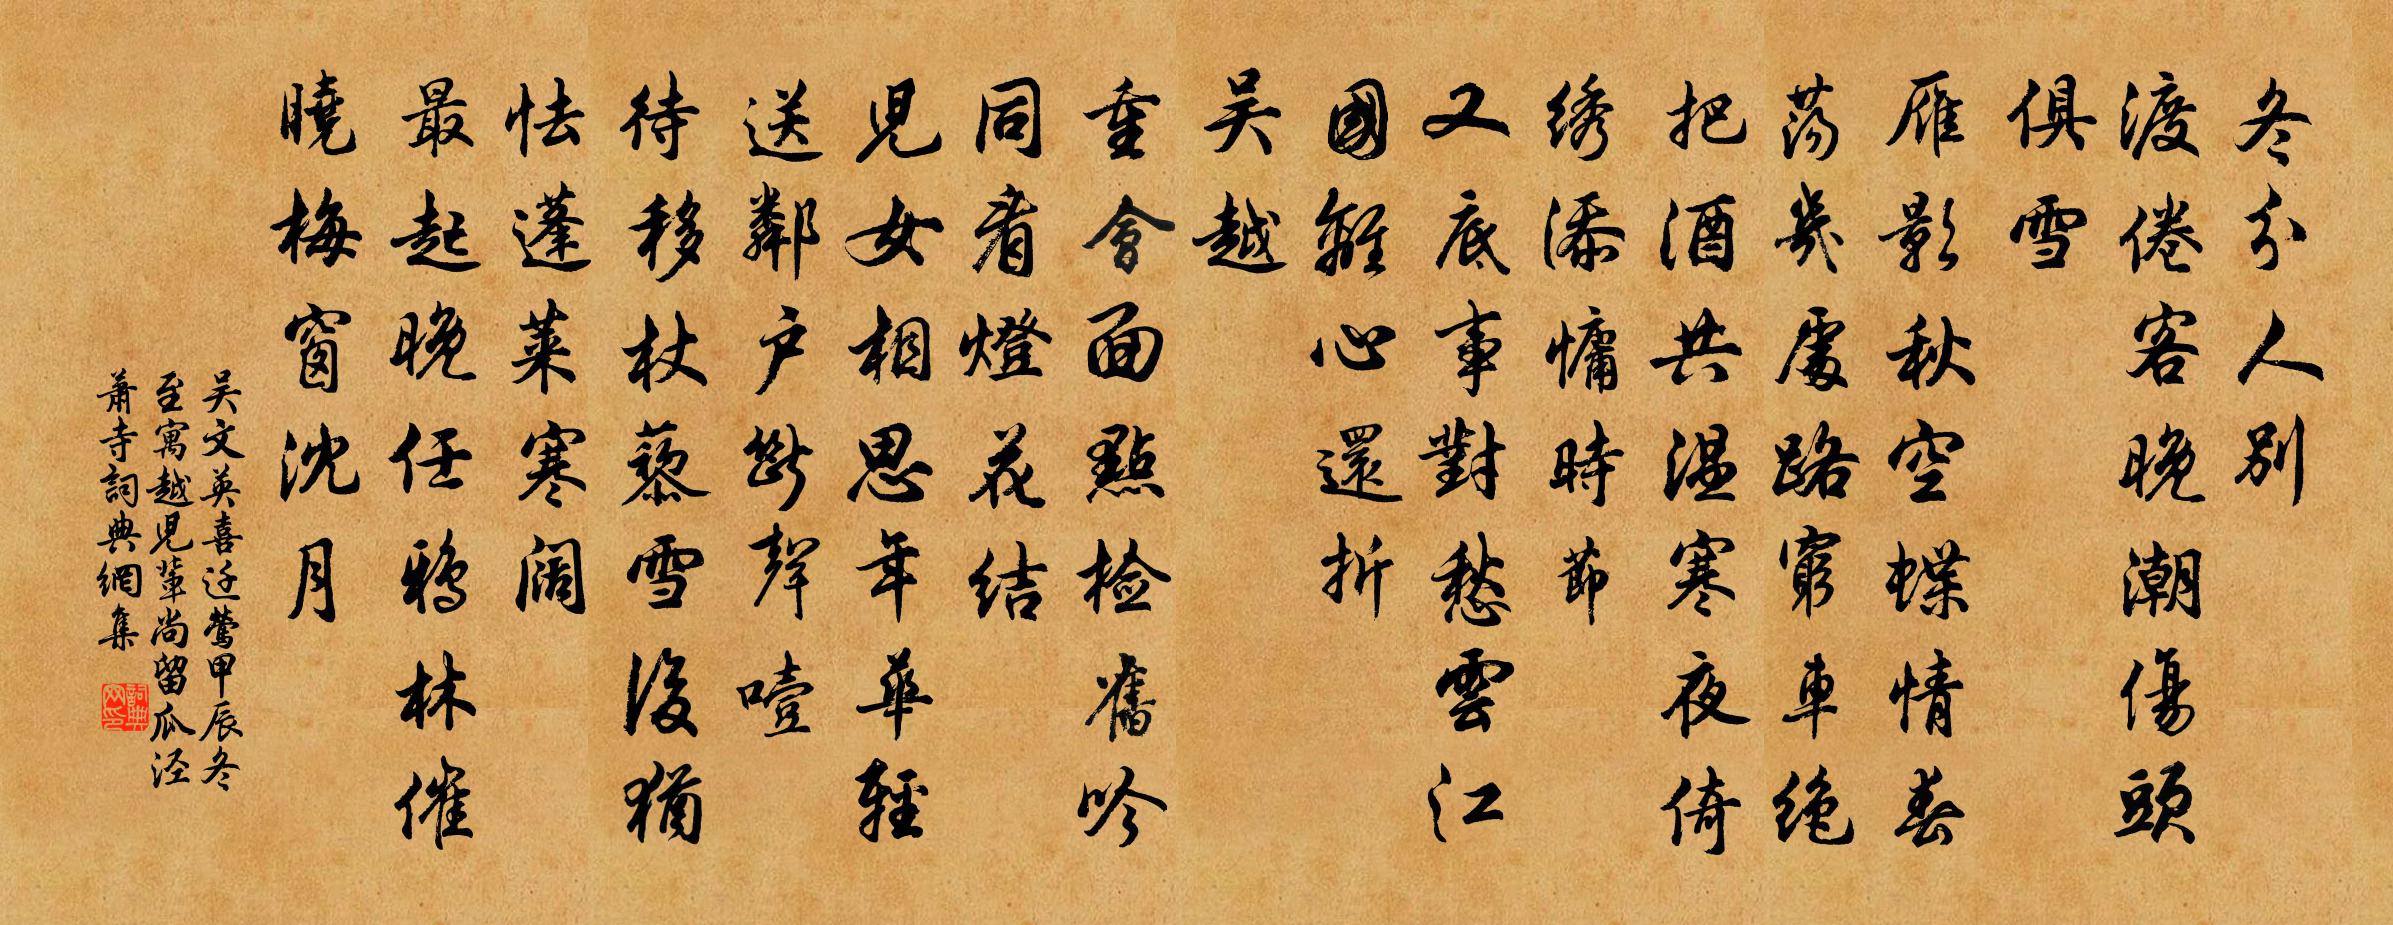 冬分人别
渡倦客晚潮傷頭
俱雪
雁影秋空蝶情春
荡幾處路窮車绝
把酒共温寒夜倚
绣添慵時節
又底事對愁雲江
國離心還折
吴越
重會面點检舊吟
同看燈花结
兒女相思年華輕
送鄰户斷聲噎
待移杖藜雪後猶
怯蓬莱寒阔
最起晚任鴉林催
曉梅窗沈月
吴文英喜迁鶯甲辰冬
至寓越兒輩尚留瓜泾
萧寺詞典網集
詞典网印